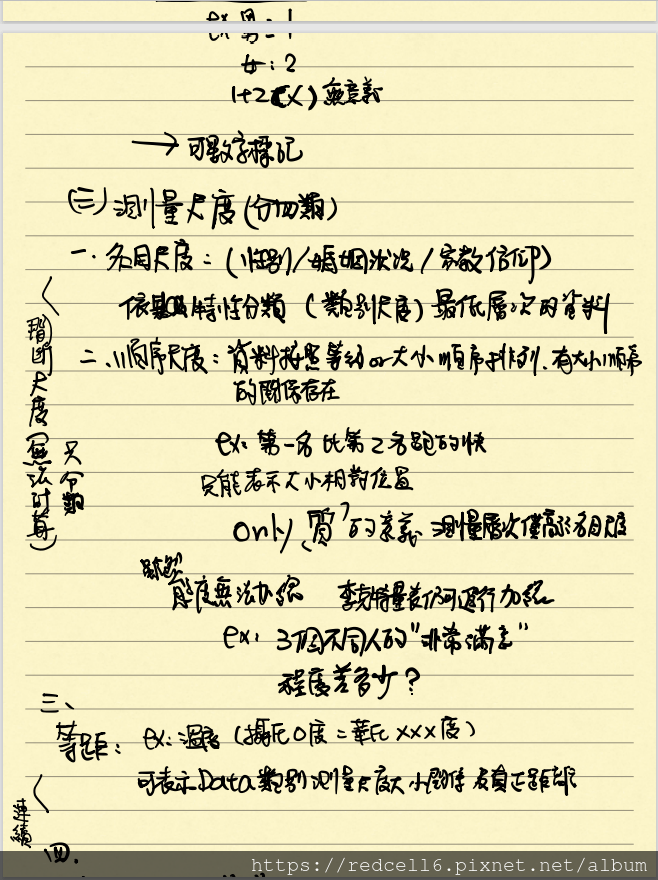 ex 男：1
女：2
1+2(X) 無意義
→ 可數字標記
(三) 測量尺度(分四類)
一. 名目尺度：(性別/婚姻狀況/宗教信仰)
依其特性分類 (類別尺度) 最低層次的資料
二. 順序尺度：資料按照等級or大小順序排列. 有大小順序
的關係存在
ex: 第一名比第2名跑的快
只能表示大小相對位置
only「質」的意義 測量層次僅高於名目尺度
態度無法加總 李克特量表仍可進行加總
ex: 3個不同人的"非常滿意"
程度差多少？
間斷尺度(無法計算)
只分類
三、
等距： ex: 溫度 (攝氏0度=華氏xxx度)
可表示Data類別測量尺度大小關係及真正距離
連續
四.
https://redcell6.pixnet.net/album